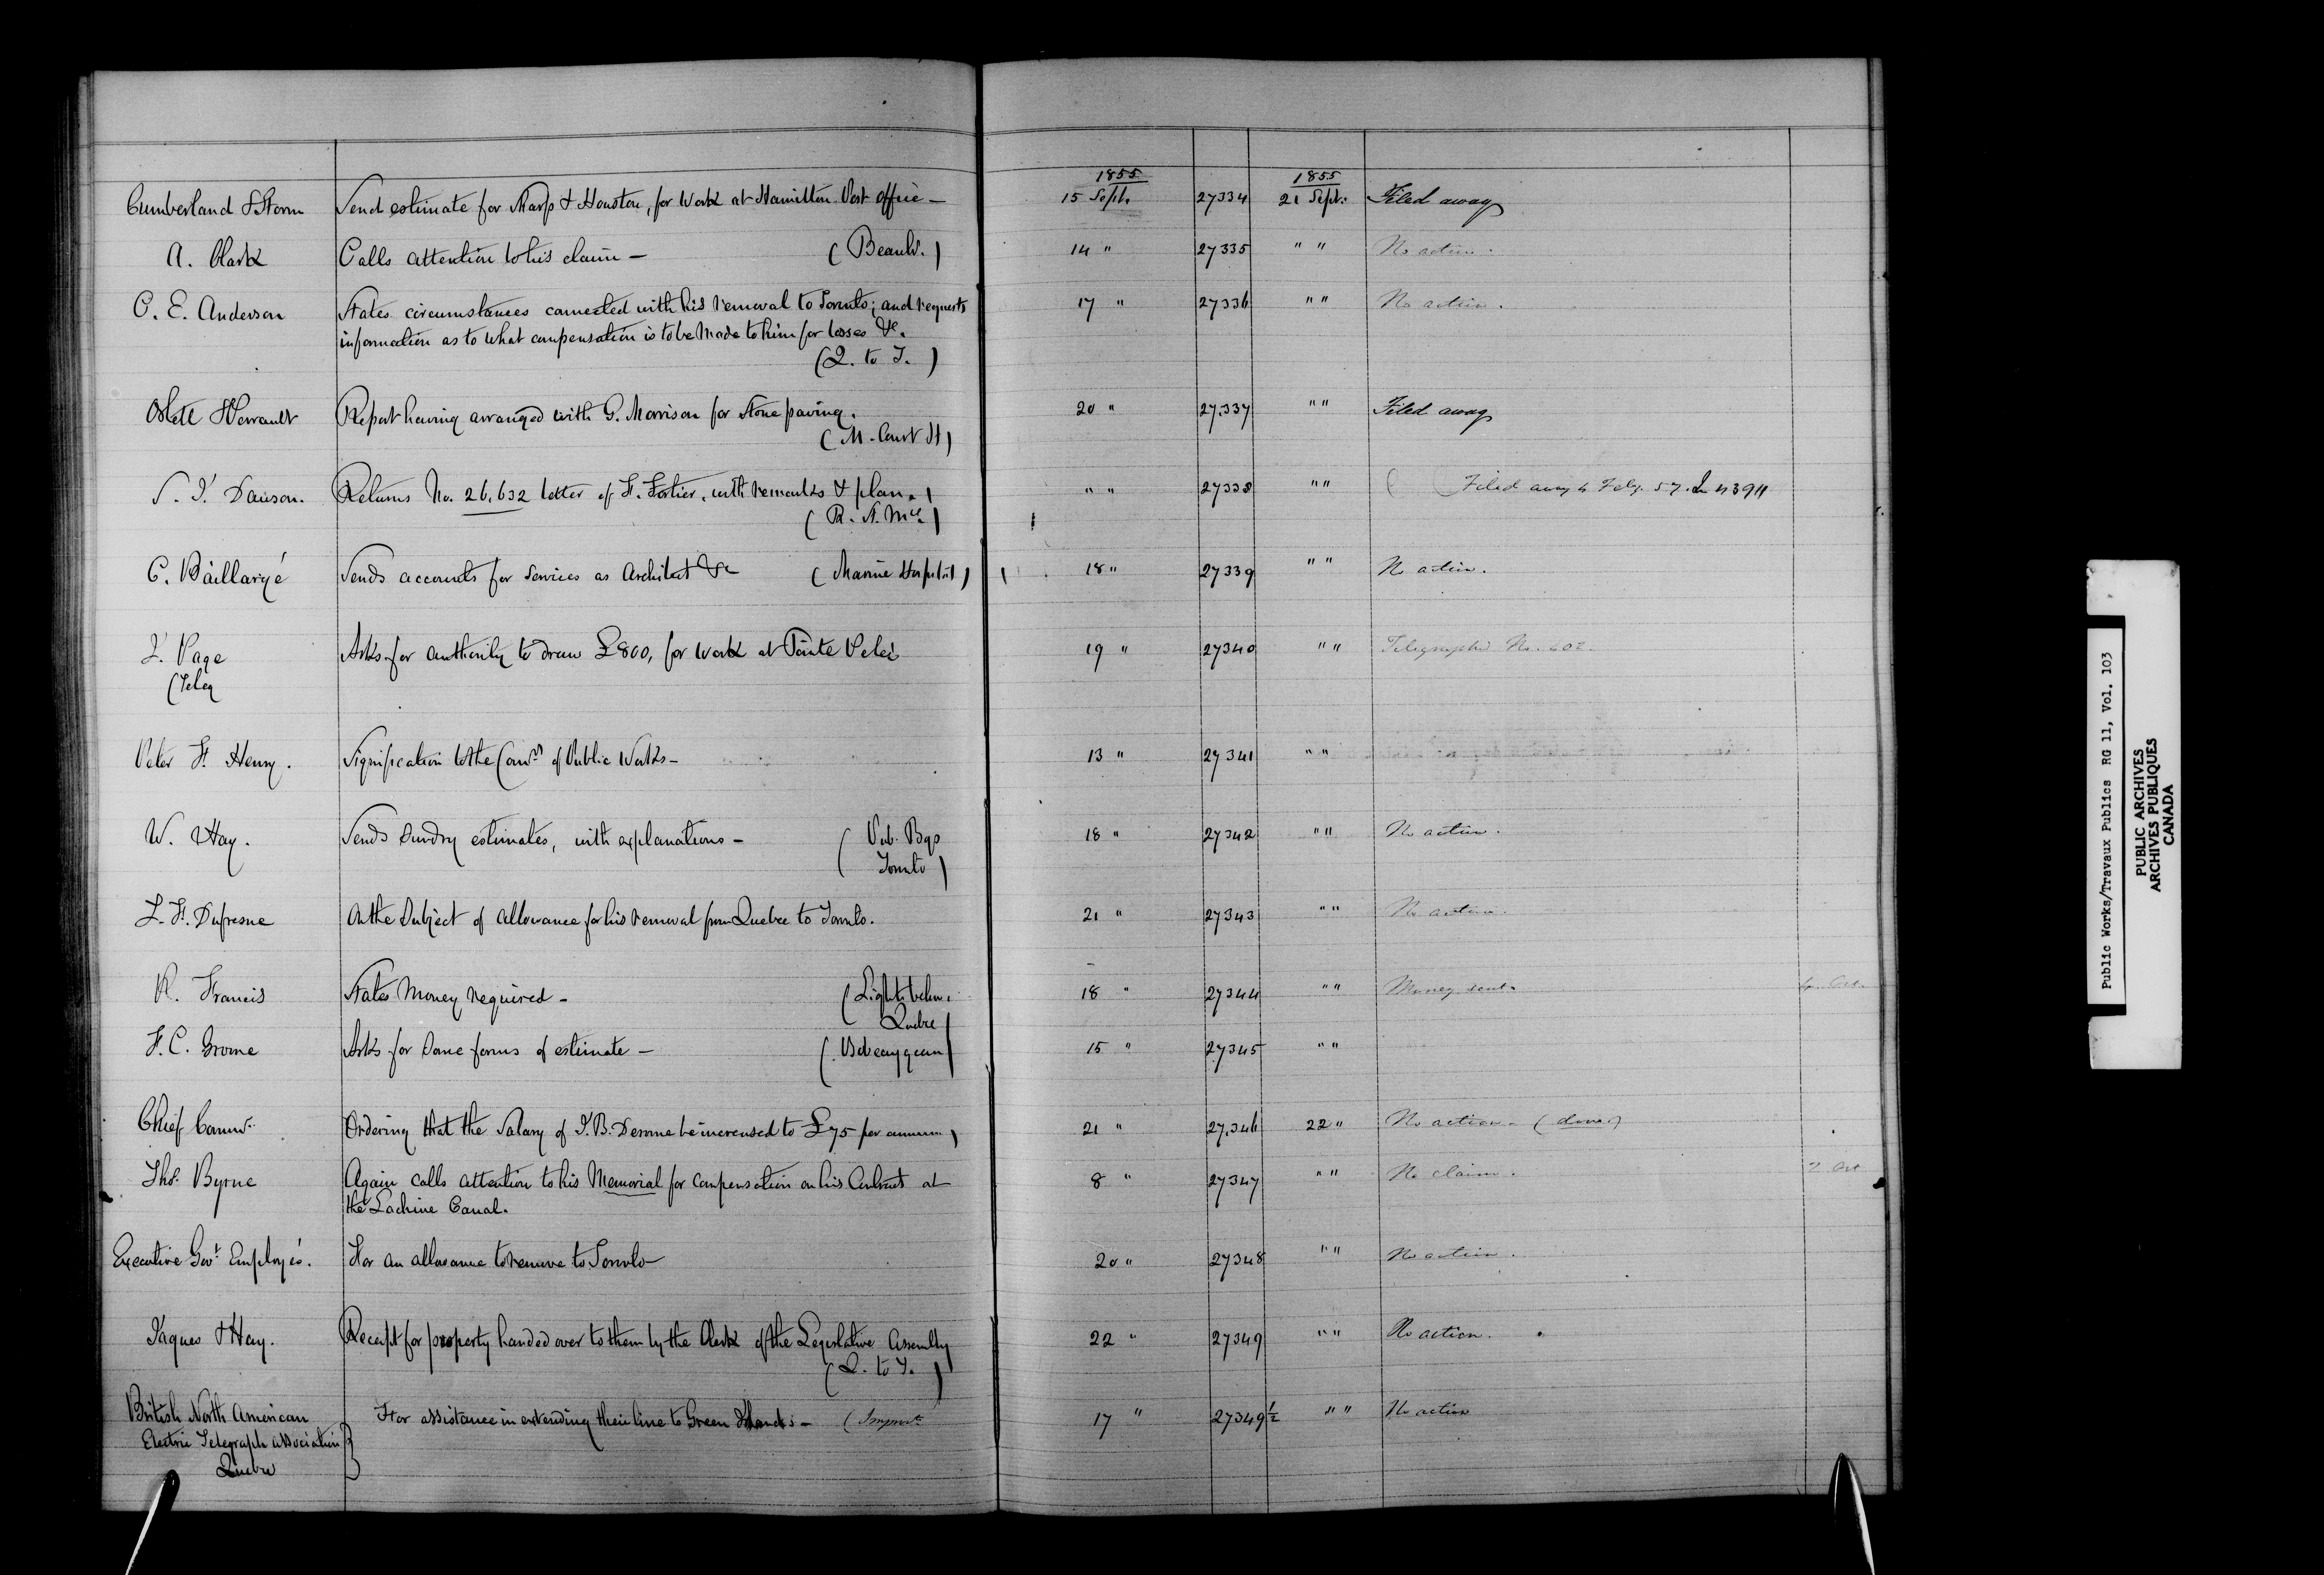 1855 1855
Cumberland & Storm Send estimate for Sharp & Houston, for Work at Hamilton Post Office — 15 Septr. 27334 21 Sept: Filed away
A. Clark Calls attention to his claim — (Beauhs.) 14 " 27335 " " No action.
C. E. Anderson States circumstances connected with his removal to Toronto; and requests 17 " 27336 " " No action.
information as to what compensation is to be made to him for losses &c.
(Q. to T.)
Ostell & Perrault Report having arranged with G. Morrison for Stone paving. 20 " 27.337 " " Filed away
(M. Court H)
S. J. Dawson. Returns No. 26,632 letter of F. Fortier, with remarks & plan. " " 27338 " " Filed away 4 Feby. 57.
(R. St. Mce.)
C. Baillargé Sends accounts for Services as Architect &c (Marine Hospital) 18 " 27339 " " No action.
J. Page Asks for authority to draw £800, for work at Pointe Pelée 19 " 27340 " " Telegraphed No.
(Teleg
Peter H. Henry. Signification to the Comrs of Public Works — 13 " 27341 " "
W. Hay. Sends Sundry estimates, with explanations — (Pub. Bgs 18 " 27342 " " No action.
Toronto)
L. H. Dufresne On the Subject of allowance for his removal from Quebec to Toronto. 21 " 27343 " " No action.
R. Francis States Money required — (Lights below 18 " 27344 " " Money sent.
Quebec)
F. C. Grome Asks for Some forms of estimate — (Bobcaygeon) 15 " 27345 " "
Chief Commr. Ordering that the Salary of J. B. Derome be increased to £75 per annum 21 " 27.346 22 " No action — (done)
Thos. Byrne Again calls attention to his Memorial for compensation on his Contract at 8 " 27347 " " No claim. 2 Oct
the Lachine Canal.
Executive Govt. Employés. For an allowance to remove to Toronto — 20 " 27348 " " No action.
Jaques & Hay. Receipt for property handed over to them by the Clerk of the Legislative Assembly 22 " 27349 " " No action.
(Q. to T.)
British North American For assistance in extending their line to Green Islands — 17 " 27349½ " " No action
Electric Telegraph Association
Quebec
Public Works/Travaux Publics RG 11, Vol. 103
PUBLIC ARCHIVES
ARCHIVES PUBLIQUES
CANADA